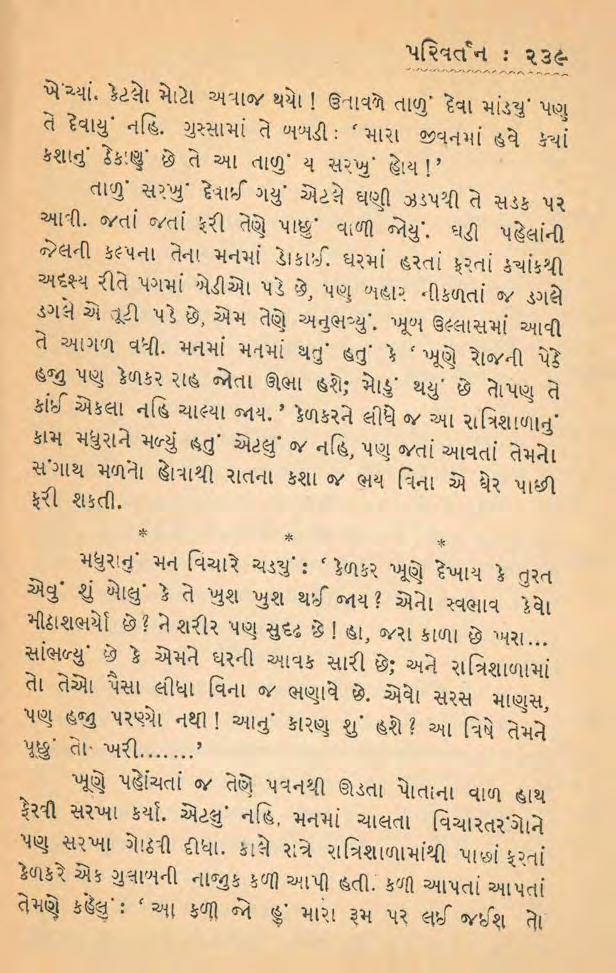 પરિવર્તન : ૨૩૯
ખેંચ્યાં. કેટલો મોટો અવાજ થયો ! ઉતાવળે તાળું દેવા માંડયું પણ
તે દેવાયું નહિ. ગુસ્સામાં તે બબડી : ‘ મારા જીવનમાં હવે ક્યાં
કશાનું ઠેકાણું છે તે આ તાળું ય સરખું હોય !’
તાળું સરખું દેવાઈ ગયું એટલે ઘણી ઝડપથી તે સડક પર
આવી. જતાં જતાં ફરી તેણે પાછું વાળી જોયું. ઘડી પહેલાંની
જેલની કલ્પના તેના મનમાં ડોકાઈ. ઘરમાં હરતાં ફરતાં કયાંકથી
અદૃશ્ય રીતે પગમાં બેડીઓ પડે છે, પણ બહાર નીકળતાં જ ડગલે
ડગલે એ તૂટી પડે છે, એમ તેણે અનુભવ્યું. ખૂબ ઉલ્લાસમાં આવી
તે આગળ વધી. મનમાં મનમાં થતું હતું કે ‘ ખૂણે રોજની પેઠે
હજુ પણ કેળકર રાહ જોતા ઊભા હશે; મોડું થયું છે તોપણ તે
કાંઈ એકલા નહિ ચાલ્યા જાય. ’ કેળકરને લીધે જ આ રાત્રિશાળાનું
કામ મધુરાને મળ્યું હતું એટલું જ નહિ, પણ જતાં આવતાં તેમનો
સંગાથ મળતો હોવાથી રાતના કશા જ ભય વિના એ ઘેર પાછી
ફરી શકતી.
* * *
મધુરાનું મન વિચારે ચડયું : ‘ કેળકર ખૂણે દેખાય કે તુરત
એવું શું બોલું કે તે ખુશ ખુશ થઈ જાય ? એનો સ્વભાવ કેવો
મીઠાશભર્યો છે ? ને શરીર પણ સુદૃઢ છે ! હા, જરા કાળા છે ખરા...
સાંભળ્યું છે કે એમને ઘરની આવક સારી છે; અને રાત્રિશાળામાં
તો તેઓ પૈસા લીધા વિના જ ભણાવે છે. એવો સરસ માણસ,
પણ હજુ પરણ્યો નથી ! આનું કારણ શું હશે ? આ વિષે તેમને
પૂછું તો ખરી.......’
ખૂણે પહોંચતાં જ તેણે પવનથી ઊડતા પોતાના વાળ હાથ
ફેરવી સરખા કર્યા. એટલું નહિ, મનમાં ચાલતા વિચારતરંગોને
પણ સરખા ગોઠવી દીધા. કાલે રાત્રે રાત્રિશાળામાંથી પાછાં ફરતાં
કેળકરે એક ગુલાબની નાજુક કળી આપી હતી. કળી આપતાં આપતાં
તેમણે કહેલું : ‘ આ કળી જો હું મારા રૂમ પર લઈ જઈશ તો